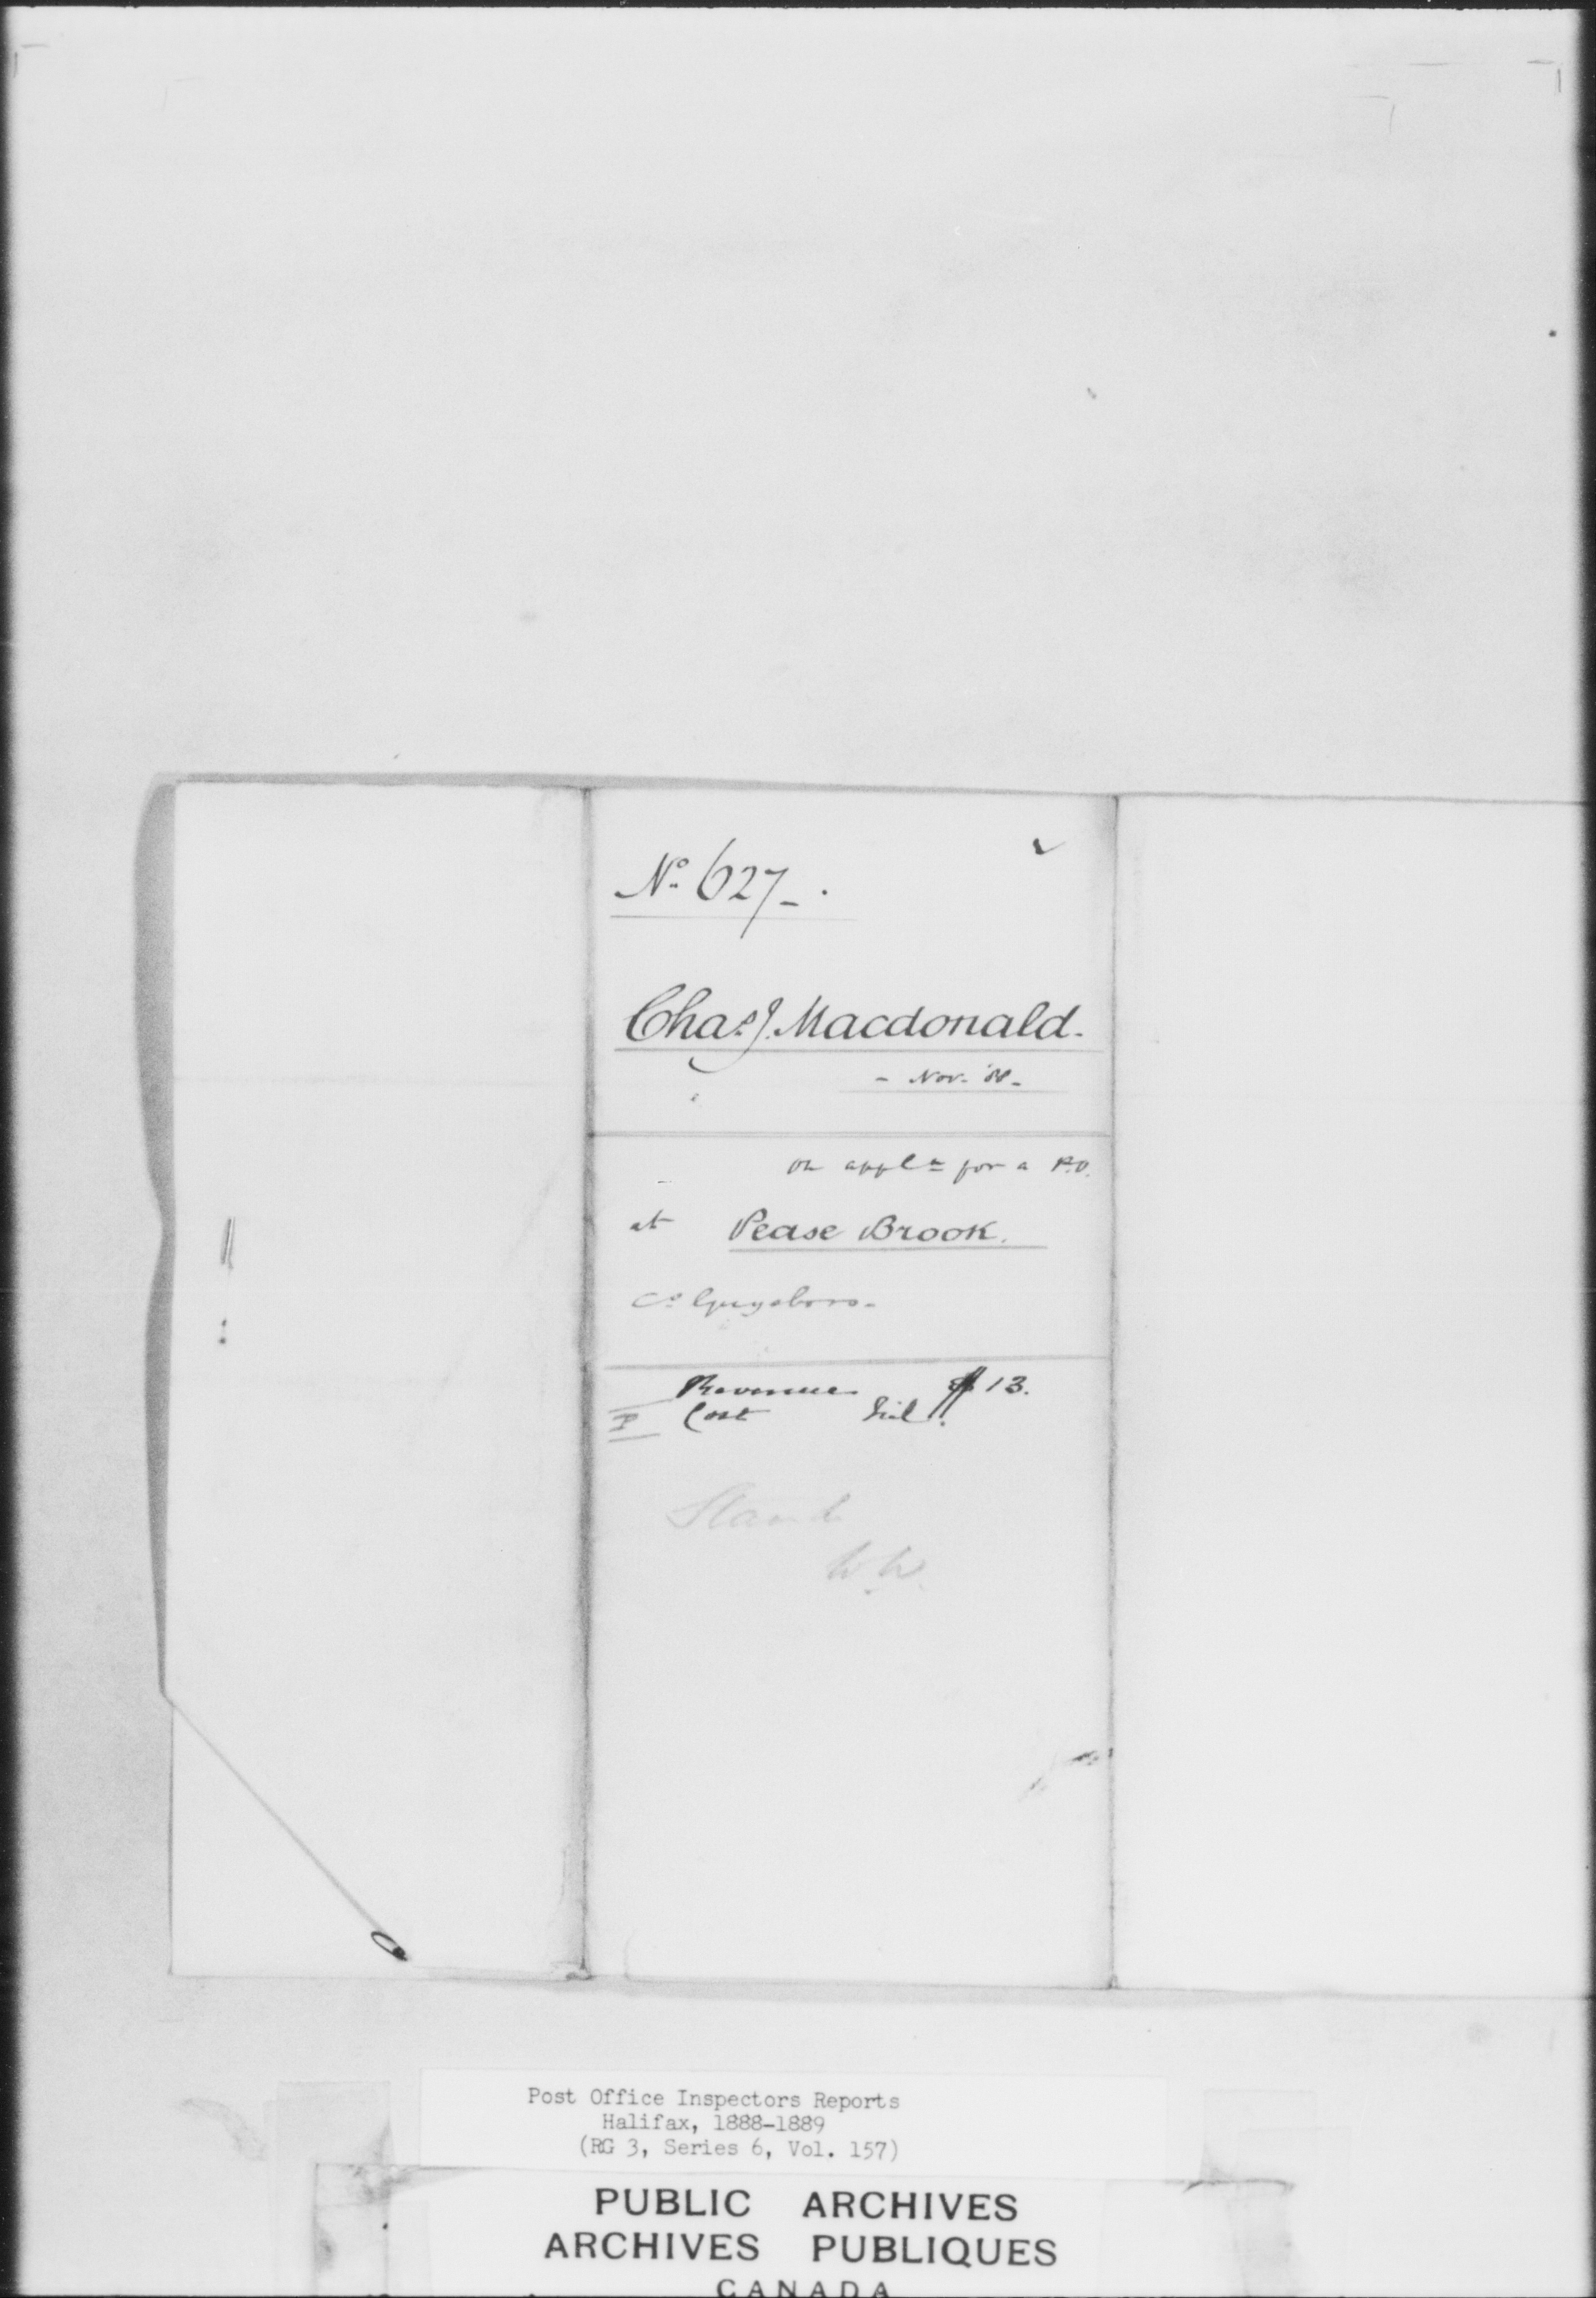 No. 627-.
Chas. J. Macdonald.
- Nov. '88 -
On appln for a P.O.
at Pease Brook.
Co. Guysboro -
Revenue $13.
Cost Nil.
Stand
W.W.
Post Office Inspectors Reports
Halifax, 1888-1889
(RG 3, Series 6, Vol. 157)
PUBLIC ARCHIVES
ARCHIVES PUBLIQUES
CANADA